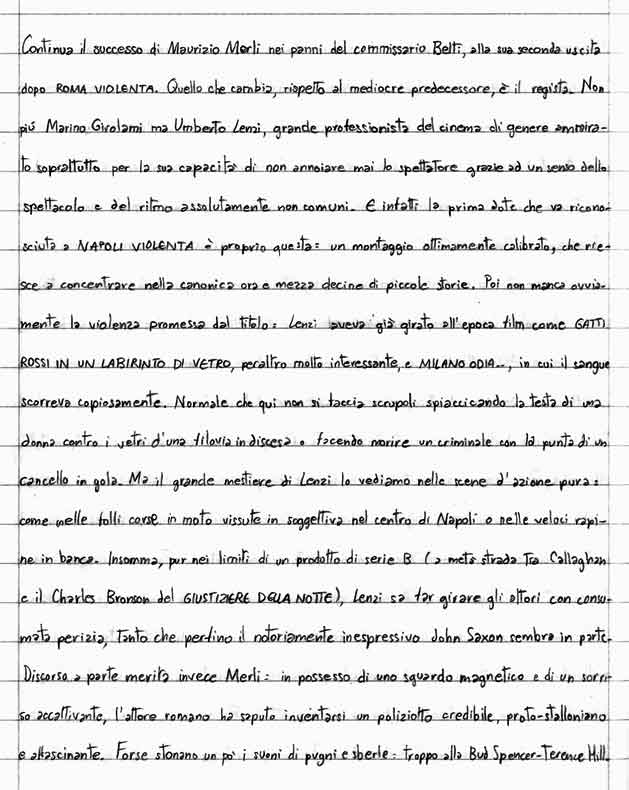 Continua il successo di Maurizio Merli nei panni del commissario Belti, alla sua seconda uscita
dopo ROMA VIOLENTA. Quello che cambia, rispetto al mediocre predecessore, è il regista. Non
più Marino Girolami ma Umberto Lenzi, grande professionista del cinema di genere ammira-
to soprattutto per la sua capacità di non annoiare mai lo spettatore grazie ad un senso dello
spettacolo e del ritmo assolutamente non comuni. E infatti la prima dote che va ricono-
sciuta a NAPOLI VIOLENTA è proprio questa: un montaggio ottimamente calibrato, che rie-
sce a concentrare nella canonica ora e mezza decine di piccole storie. Poi non manca ovvia-
mente la violenza promessa dal titolo: Lenzi aveva già girato all'epoca film come GATTI
ROSSI IN UN LABIRINTO DI VETRO, peraltro molto interessante, e MILANO ODIA..., in cui il sangue
scorreva copiosamente. Normale che qui non si faccia scrupoli spiaccicando la testa di una
donna contro i vetri d'una filovia in discesa o facendo morire un criminale con la punta di un
cancello in gola. Ma il grande mestiere di Lenzi lo vediamo nelle scene d'azione pura:
come nelle folli corse in moto vissute in soggettiva nel centro di Napoli o nelle veloci rapi-
ne in banca. Insomma, pur nei limiti di un prodotto di serie B (a metà strada tra Callaghan
e il Charles Bronson del GIUSTIZIERE DELLA NOTTE), Lenzi sa far girare gli attori con consu-
mata perizia, tanto che perfino il notoriamente inespressivo John Saxon sembra in parte.
Discorso a parte merita invece Merli: in possesso di uno sguardo magnetico e di un sorri-
so accattivante, l'attore romano ha saputo inventarsi un poliziotto credibile, proto-stalloniano
e affascinante. Forse stonano un po' i suoni di pugni e sberle: troppo alla Bud Spencer-Terence Hill.